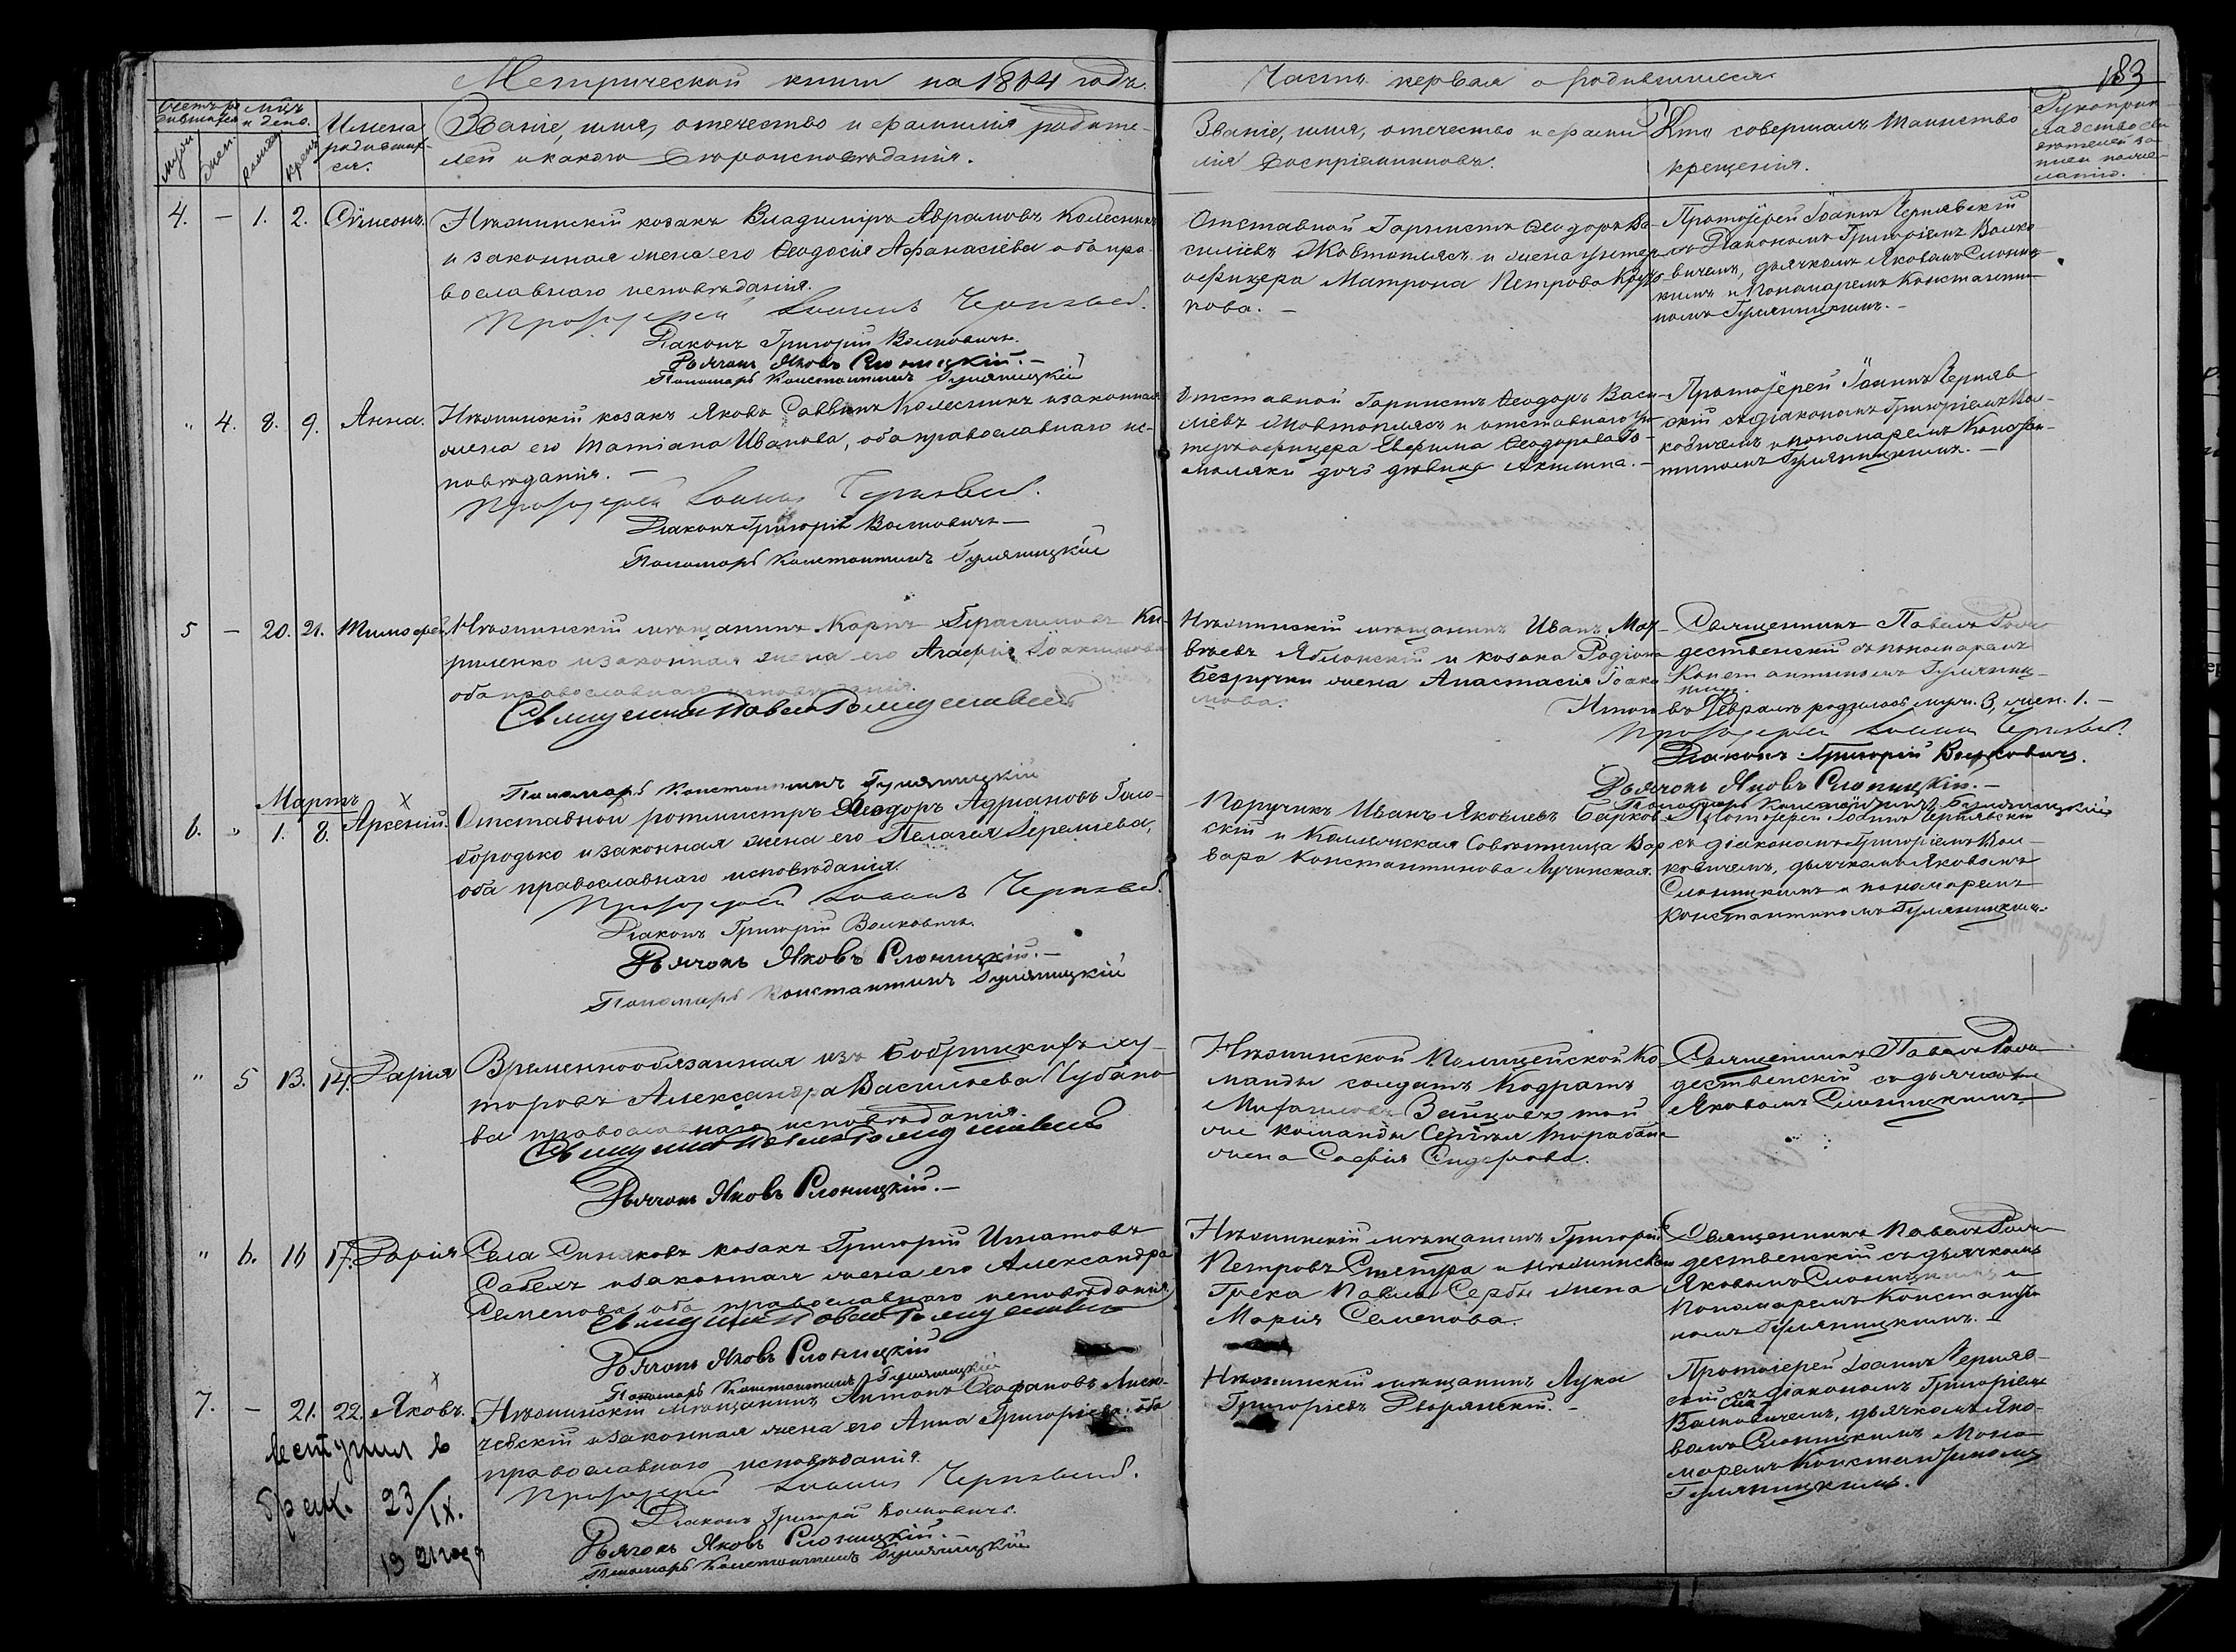 Метрической книги на 1864 годъ.
Часть первая о родившихся
183
Счетъ ро
дившихся
Мѣц.
и день.
Муж.
Жен.
рожден.
крещ.
Имена
родивших-
ся.
Званіе, имя, отечество и фамилія родите-
лей и какого вѣроисповѣданія.
Званіе, имя, отечество и фами
лія воспріемниковъ.
Кто совершалъ таинство
крещенія.
Рукоприк-
ладство сви
дѣтелей за
писи по же-
ланію.
4. — 1. 2. Сѵмеонъ.
Нѣжинскій козакъ Владиміръ Аврамовъ Колесникъ
и законная жена его Ѳеодосія Афанасіева оба пра-
вославнаго исповѣданія.
Протоіерей Іоаннъ Чернявскій.
Діаконъ Григорій Волковичъ.
Дьячокъ Яковъ Слоницкій. —
Пономарь Константинъ Гуляницкій
Отставной Гарнистъ Ѳеодоръ Ва-
силіевъ Жовтоплясъ и жена унтер
офицера Матрона Петрова
кова. —
Протоіерей Іоаннъ Чернявскій
съ Діакономъ Григоріемъ Волко-
вичемъ, дьячкомъ Яковомъ Слониц-
кимъ и Пономаремъ Константи-
номъ Гуляницкимъ. —
" 4. 8. 9. Анна.
Нѣжинскій козакъ Яковъ Саввинъ Колесникъ и законная
жена его Татіана Иванова, оба православнаго ис-
повѣданія. —
Протоіерей Іоаннъ Чернявскій.
Діаконъ Григорій Волковичъ —
Пономарь Константинъ Гуляницкій
Отставной Гарнистъ Ѳеодоръ Васи-
ліевъ Жовтоплясъ и отставнаго ун-
теръ офицера Евфима Ѳеодорова
дочь дѣвица Акилина. —
Протоіерей Іоаннъ Черняв
скій съ діакономъ Григоріемъ Вол-
ковичемъ и пономаремъ Констан-
тиномъ Гуляницкимъ. —
5 — 20. 21. Тимофей
Нѣжинскій мѣщанинъ Карпъ Герасимовъ Ки-
риленко и законная жена его Агафія Іоакимова
оба православнаго исповѣданія.
Священникъ Павелъ Рождественскій
Пономарь Константинъ Гуляницкій
Нѣжинскій мѣщанинъ Иванъ Мат-
вѣевъ Яблонскій и козака Родіона
Безручки жена Анастасія Іоаки
мова.
Священникъ Павелъ Рож
дественскій съ пономаремъ
Константиномъ Гуляниц-
кимъ.
Итого въ Февралѣ родилось муж. 3, жен. 1. —
Протоіерей Іоаннъ Чернявскій.
Діаконъ Григорій Волковичъ.
Дьячокъ Яковъ Слоницкій. —
Пономарь Константинъ Гуляницкій
Мартъ
6. " 1. 8. Арсеній.
Отставной ротмистръ Ѳеодоръ Адріановъ Голо-
бородько и законная жена его Пелагея Іереміева,
оба православнаго исповѣданія.
Протоіерей Іоаннъ Чернявскій.
Діаконъ Григорій Волковичъ.
Дьячокъ Яковъ Слоницкій. —
Пономарь Константинъ Гуляницкій
Поручикъ Иванъ Яковлевъ Барков-
скій и Колежская Совѣтница Вар
вара Константинова Лучинская.
Протоіерей Іоаннъ Чернявскій
съ діакономъ Григоріемъ Вол-
ковичемъ, дьячкомъ Яковомъ
Слоницкимъ и пономаремъ
Константиномъ Гуляницкимъ.
" 5 13. 14. Дарія
Временнообязанная изъ Бобрицкихъ ху-
торовъ Александра Васильева
ва православнаго исповѣданія.
Священникъ Павелъ Рождественскій
Дьячокъ Яковъ Слоницкій. —
Нѣжинской Полицейской Ко
манды солдатъ Кодратъ
Михайловъ Зайцовъ той
же команды Сергѣя
жена Софія Сидорова.
Священникъ Павелъ Рож
дественскій съ дьячкомъ
Яковомъ Слоницкимъ
" 6. 16 17. Дарія
Села Синяковъ козакъ Григорій Игнатовъ
и законная жена его Александра
Семенова, оба православнаго исповѣданія
Священникъ Павелъ Рождественскій
Дьячокъ Яковъ Слоницкій
Пономарь Константинъ Гуляницкій
Нѣжинскій мѣщанинъ Григорій
Петровъ и нѣжинскаго
Грека Павла Сербы жена
Марія Семенова.
Священникъ Павелъ Рож
дественскій съ дьячкомъ
Яковомъ Слоницкимъ и
Пономаремъ Константи
номъ Гуляницкимъ. —
7. — 21. 22. Яковъ.
Нѣжинскій мѣщанинъ Антонъ Стефановъ
чевскій и законная жена его Анна Григоріева оба
православнаго исповѣданія.
Протоіерей Іоаннъ Чернявскій.
Діаконъ Григорій Волковичъ.
Дьячокъ Яковъ Слоницкій. —
Пономарь Константинъ Гуляницкій
Вступил в
брак. 23/IX.
1921 года
Нѣжинскій мѣщанинъ Лука
Григоріевъ Дворянскій. —
Протоіерей Іоаннъ Черняв-
скій съ діакономъ Григоріемъ
Волковичемъ, дьячкомъ Яко-
вомъ Слоницкимъ и Поно
маремъ Константиномъ
Гуляницкимъ.